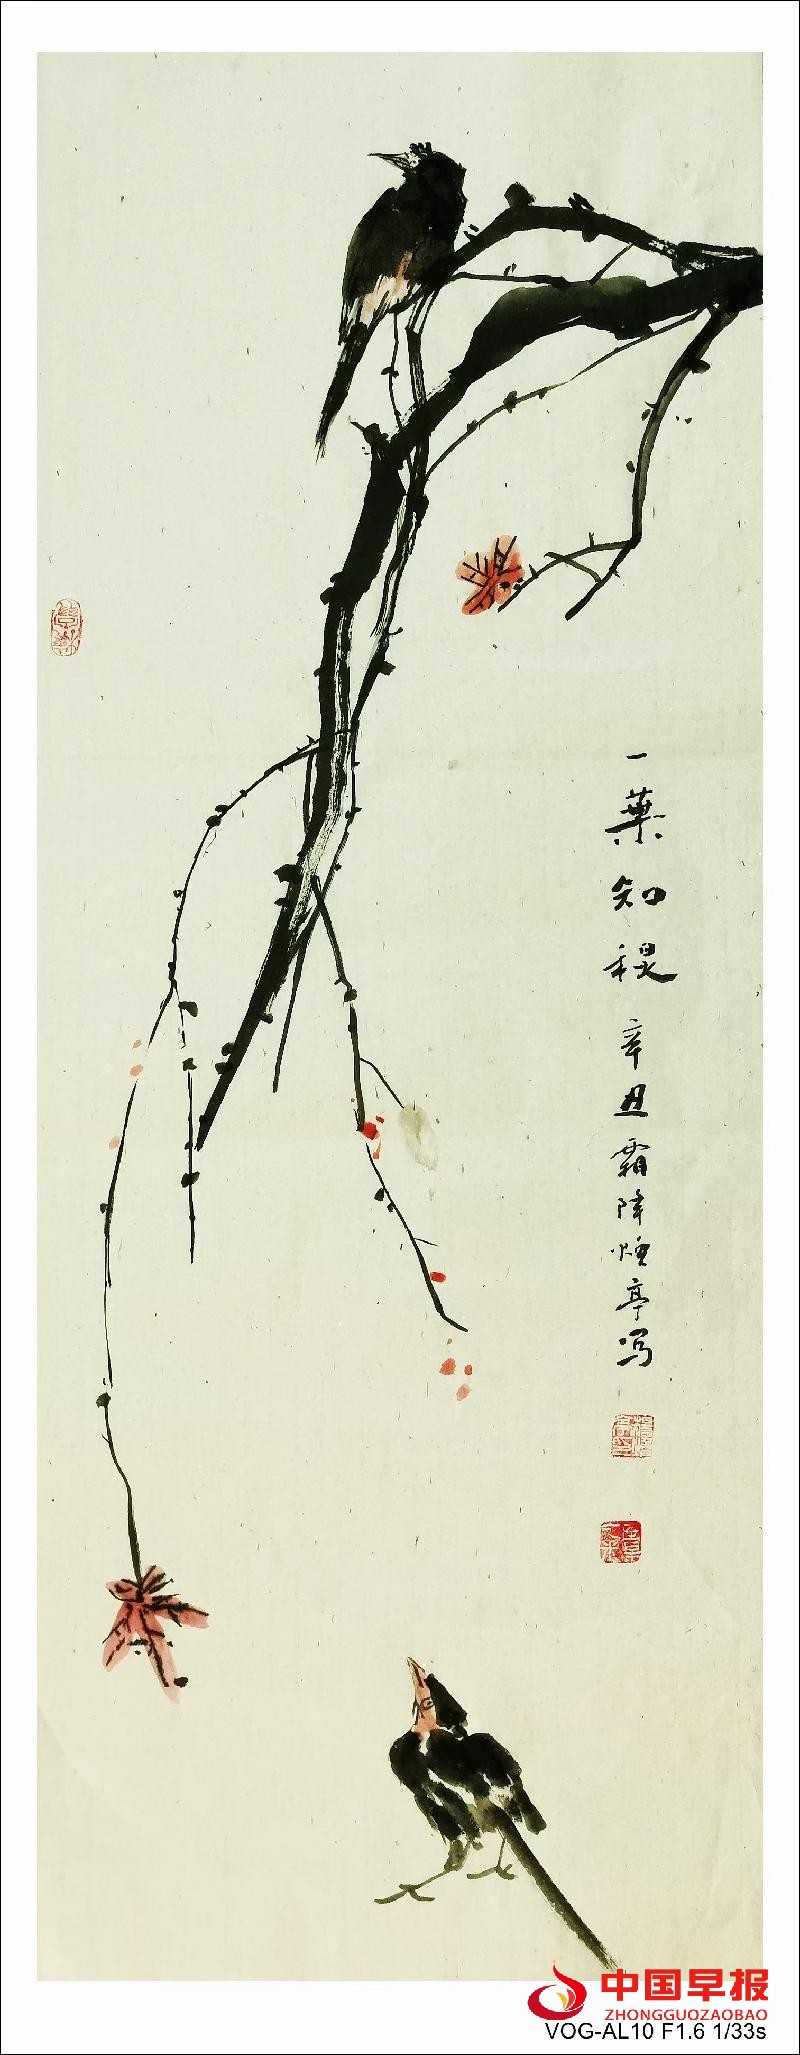 一葉知秌
辛丑霜降煙亭写
中国早报
ZHONGGUOZAOBAO
VOG-AL10 F1.6 1/33s